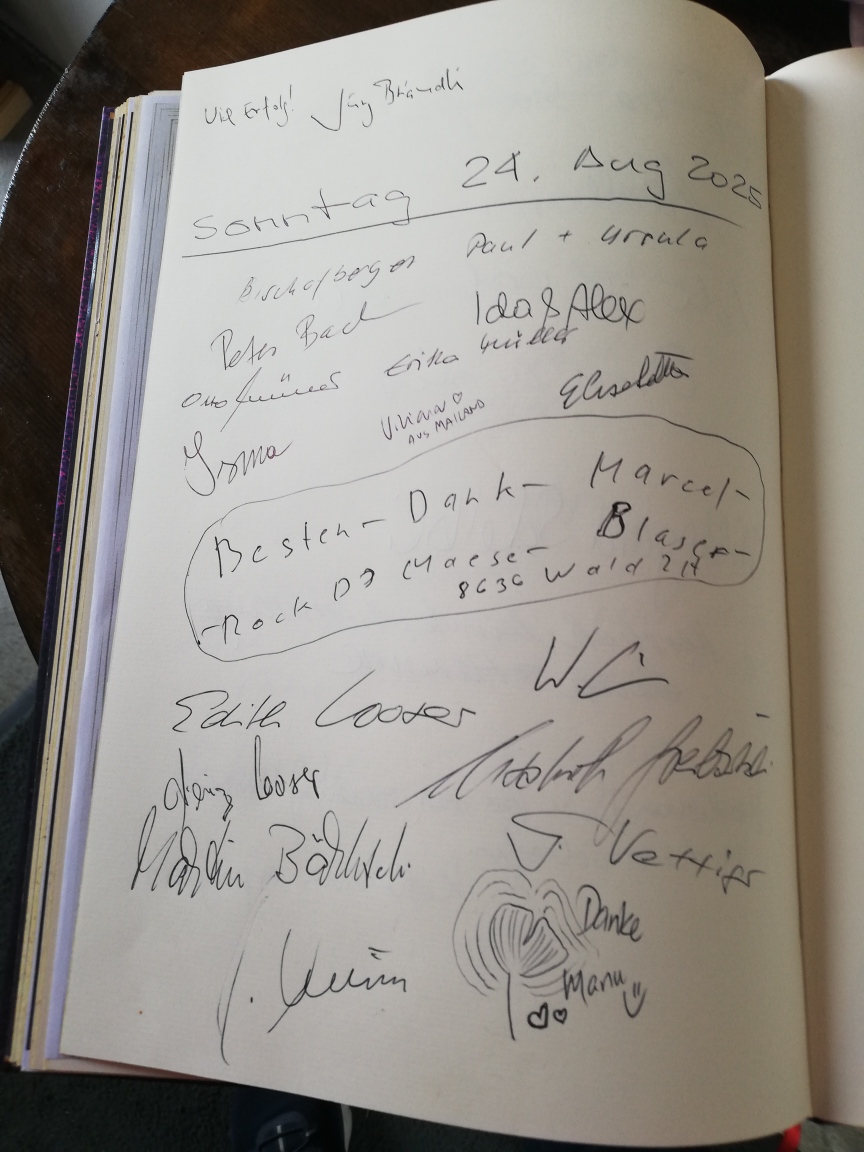 Viel Erfolg! Jürg Brändli
Sonntag 24. Aug 2025
Bischofberger Paul + Ursula
Peter Bach Ida & Alex
Otto Erika Müller
Viviana ♡ Elisabetta
AUS MAILAND
Irma
Besten- Dank- Marcel-
Blaser-
-Rock DJ Maese-
8636 Wald ZH
Edith Looser W.
Heinz Looser
Martin Bächtold
J. Vettiger
Danke
Manu